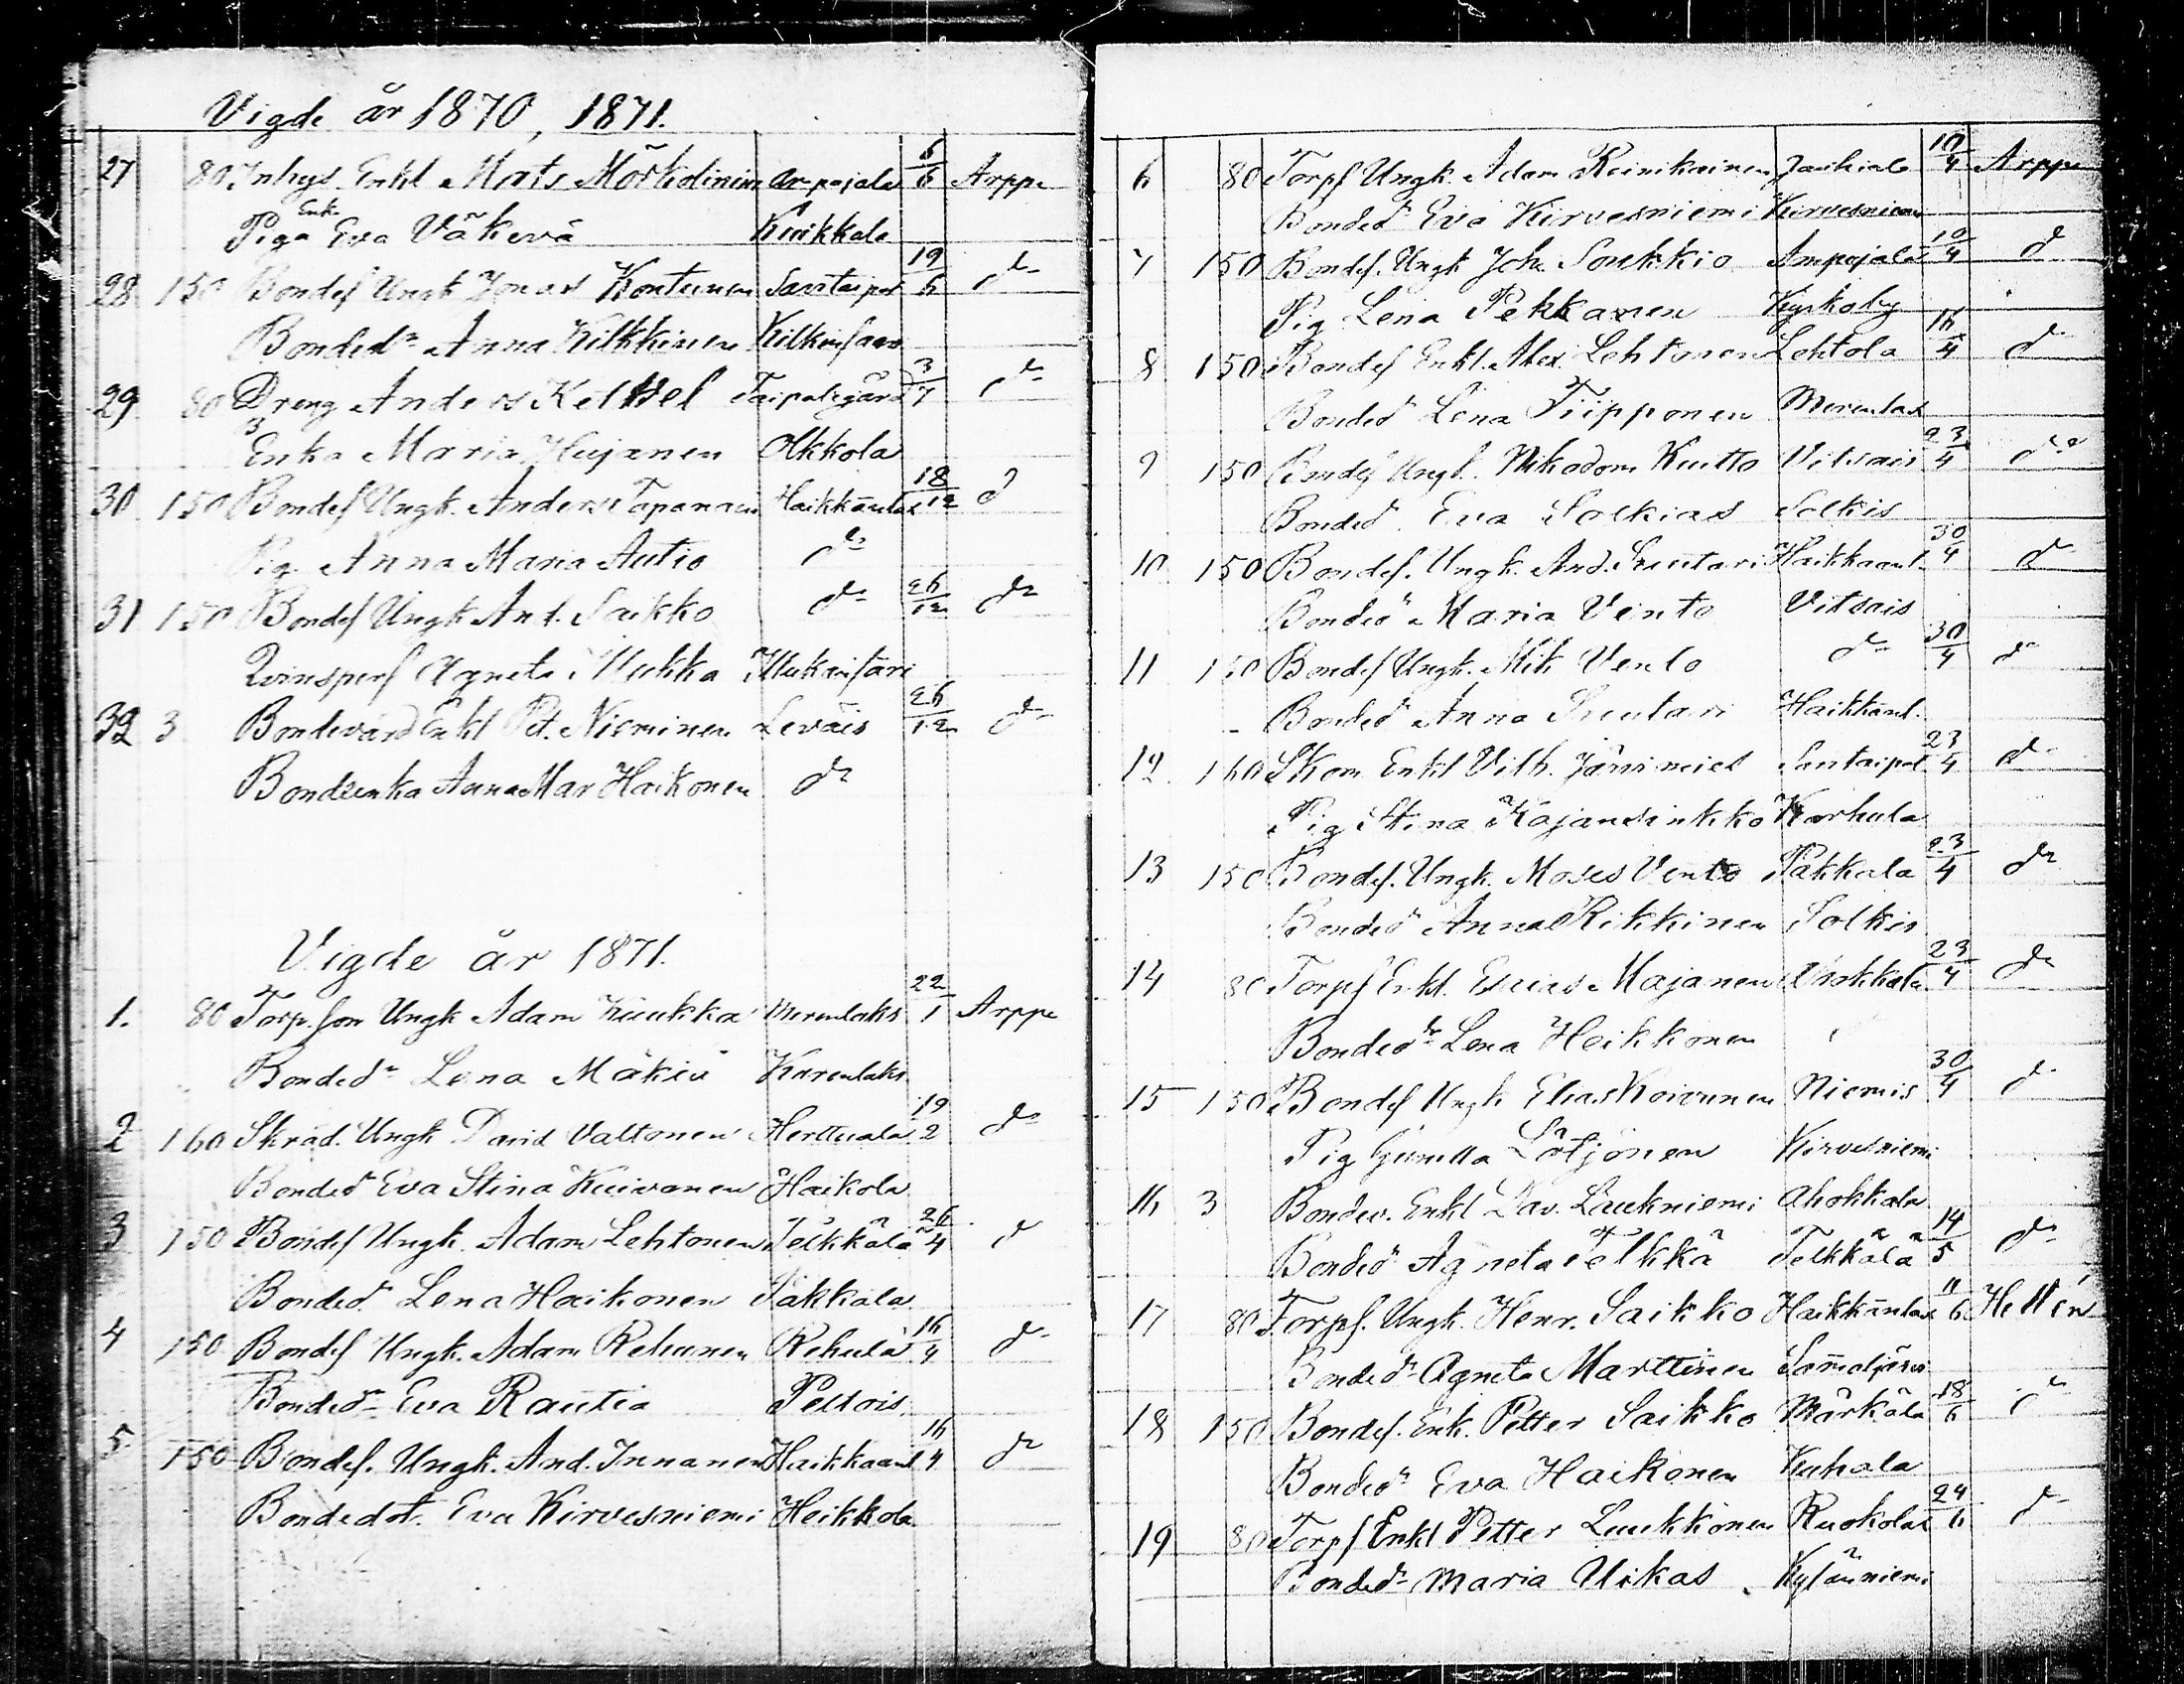 Vigde år 1870, 1871.
27 80 Inhys. Enkl Mats Arpajala 6/6 Arppe
Enk.
Piga Eva Väkevä Kuikkala
28 150 Bondes Ungk Jonas Kontunen Savitaipal 19/6 do
Bonded:r Anna Kilkkinen
29 80 Dreng Anders Taipalegård 3/7 do
3 Enka Maria Hujanen Olkkola
30 150 Bondes Ungk. Anders Tapanain Haikkänlax 18/12 d
Pig. Anna Maria Autio do
31 150 Bondes Ungk And. Saikko do 26/12 do
Agneta Mukka
32 3 Bondevärd Enkl Pet. Nieminen Leväis 26/12 do
Bondeenka Anna Mar Haikonen do
Vigde år 1871.
1. 80 Torp. son Ungk Adam Kuukka Merenlaks 22/1 Arppe
Bonded:r Lena Mäkiä Kärenlaks
2 160 Skräd. Ungk David Valtonen Herttuala 19/2 do
Bonded Eva Stina Kuivanen Haikola
3 150 Bondes Ungk. Adam Lehtonen Telkkälä 26/4 d
Bonded. Lena Haikonen Säkkälä
4 150 Bondes Ungk. Adam Rehunen Rehula 16/4 do
Bonded:r Eva Rautia Peltois
5. 150 Bondes. Ungk. And. Innanen Haikkaanl 16/4 do
Bondedot. Eva Kirvesniemi Heikkola
6 80 Torps Ungk. Adam Reinikainen 10/4 Arppe
Bonded Eva Kirvesniemi Kirvesniemi
7 150 Bondes. Ungk Joh. Soukkio Ampujala 10/4 d
Pig Lena Pekkanen Kyrkoby
8 150 Bondes Enkl. Alex. Lehtonen Lehtola 16/4 d
Bonded Lena Tiipponen Merenlax
9 150 Bondes Ungk. Nikodem Kuitto Vitsais 23/4 do
Bonded. Eva Solkias Solkis
10 150 Bondes. Ungk. And. Suutari Haikkaanl. 30/4 d
Bonded Maria Vento Vitsais
11 150 Bondes Ungk. Mik Vento do 30/4 d
Bonded Anna Suutari Haikkänl.
12 160 Skom Enkl Vilh. Järvimies Savitaipal 23/4 d
Pig Stina Kajansinkko Karhula
13 150 Bondes. Ungk. Moses Vento Pakkala 23/4 do
Bonded Anna Rikkinen Solkis
14 80 Torps Enkl. Esaias Majanen Ahokkala 23/4 do
Bonded:r Lena Heikkonen
15 150 Bondes Ungk Elias Koivunen Niemis 30/4 d
Pig Gunilla Lötjönen Kirvesniemi
16 3 Bondev. Enkl Dav. Laukniemi Ahokkala
Bonded Agneta Telkkä Telkkälä 14/5 do
17 80 Torps. Ungk. Henr. Saikko Haikkänlax 11/6 Hellén
Bonded:r Agneta Marttinen Sammaljärvi
18 150 Bondes. Enk. Petter Saikko Märkälä 18/6 d
Bonded Eva Haikonen Kuhala
19 80 Torps Enkl Petter Luukkonen Ruokolax 24/6 d
Bonded:r Maria Uskas Kyläniemi